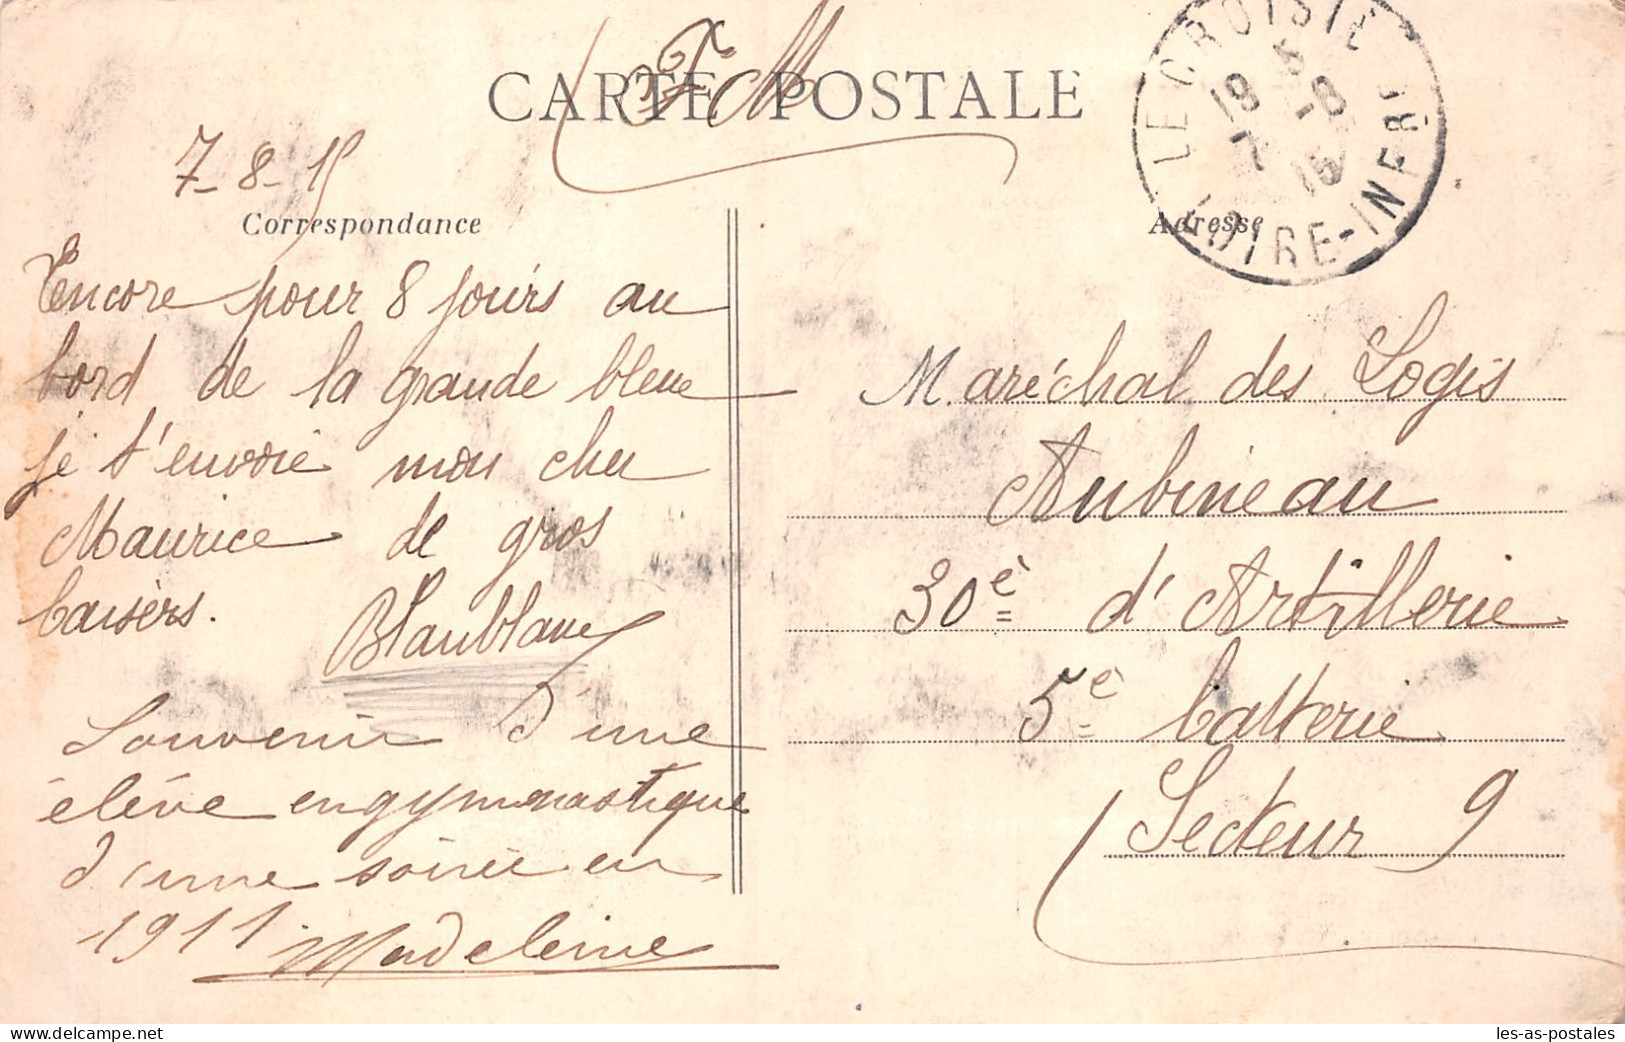 F M
CARTE POSTALE
LE CROISIC
19 5
7 -8
15
LOIRE-INFRE
7-8-15
Correspondance
Adresse
Encore pour 8 jours au
bord de la grande bleue
je t'envoie mon cher
Maurice de gros
baisers.
Souvenir d'une
élève en gymnastique
d'une soirée en
1911 Madeleine
Maréchal des Logis
Aubineau
30e d'Artillerie
5e batterie
Secteur 9
delcampe.net
les-as-postales